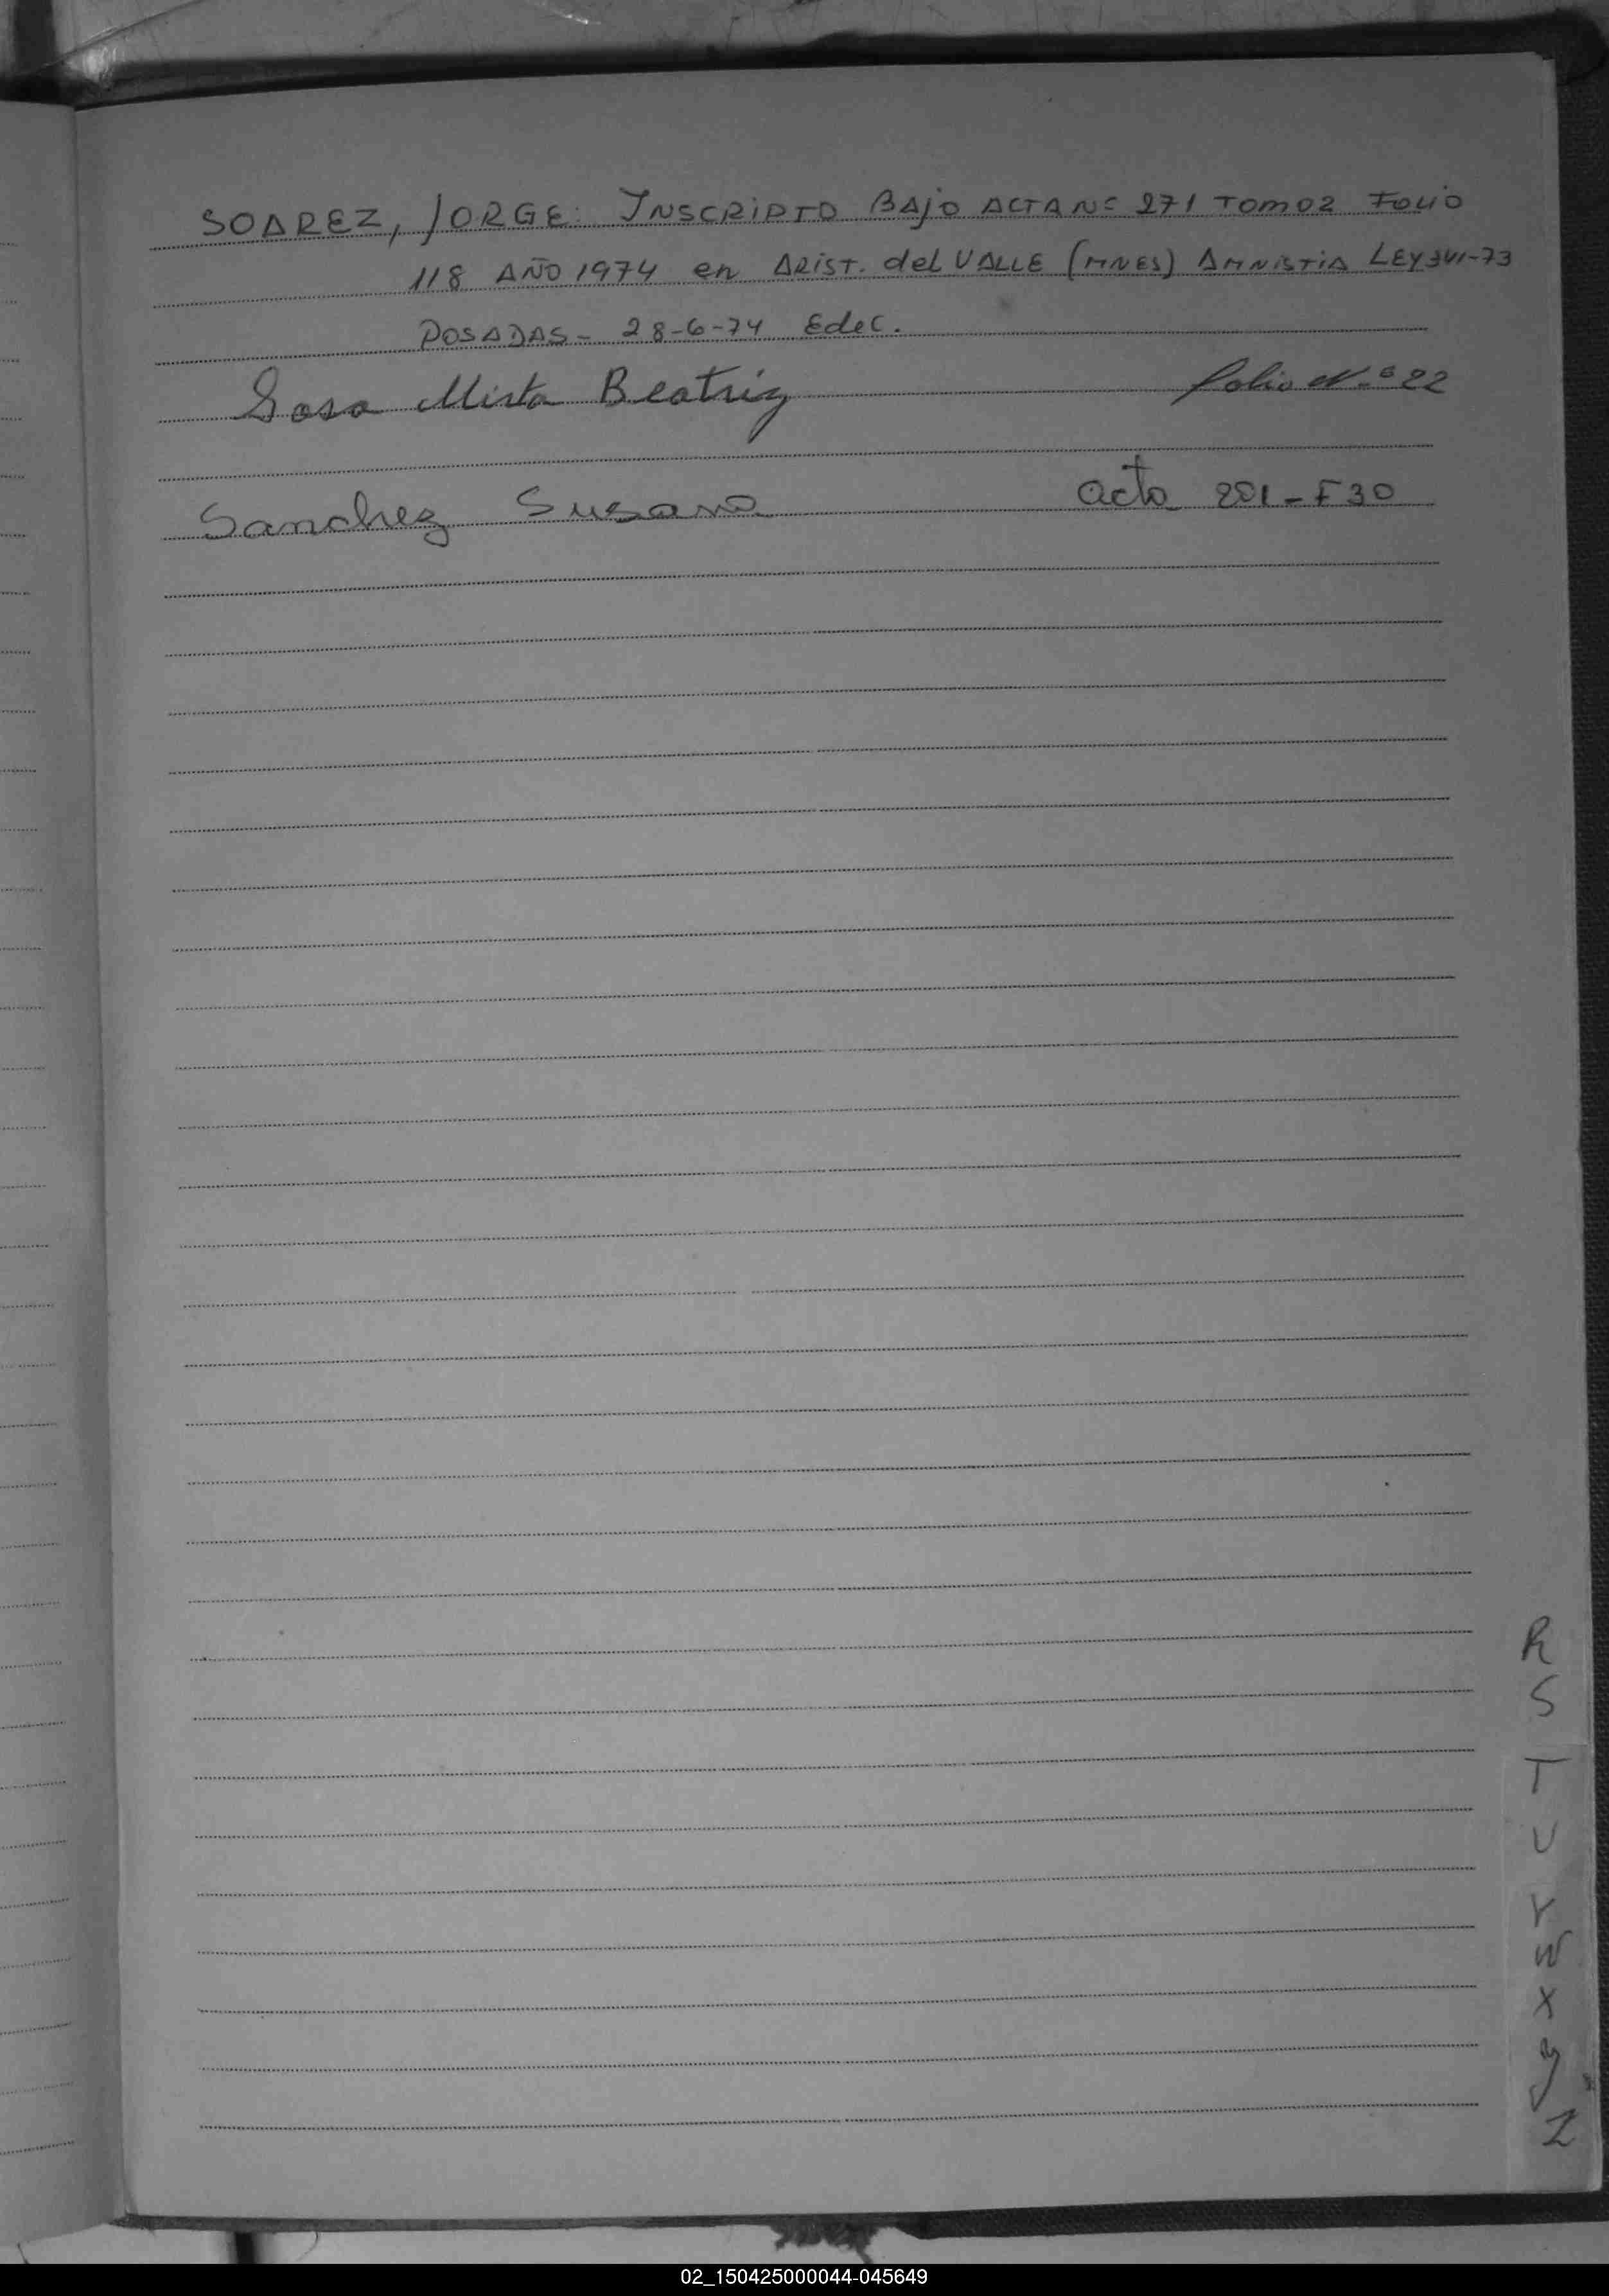 SOAREZ, JORGE: INSCRIPTO BAJO ACTA Nº 271 TOMO 2 FOLIO
118 AÑO 1974 en ARIST. del VALLE (MNES) AMNISTIA LEY 341-73
POSADAS - 28-6-74 Edec.
Sosa Mirta Beatriz folio N.º 22
Sanchez Susana acta 201 - F 30
R
S
T
U
V
W
X
Y
Z
02_150425000044-045649